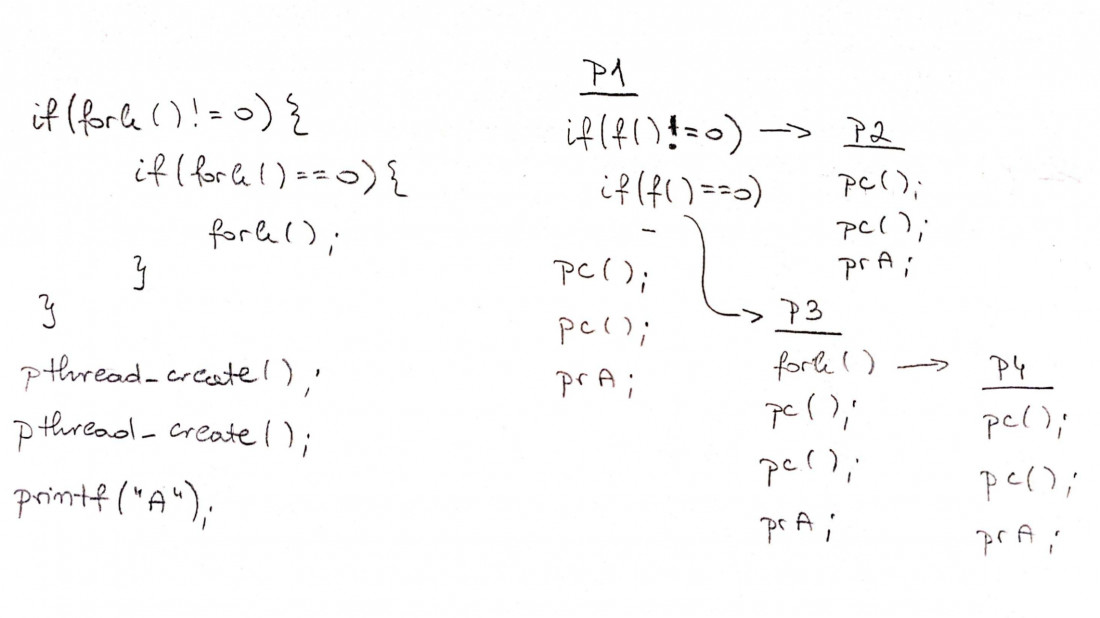 if(fork()!=0){
if(fork()==0){
fork();
}
}
pthread_create();
pthread_create();
printf("A");
P1
if(f()!=0) →
if(f()==0)
-
pc();
pc();
prA;
P2
pc();
pc();
prA;
P3
fork() →
pc();
pc();
prA;
P4
pc();
pc();
prA;